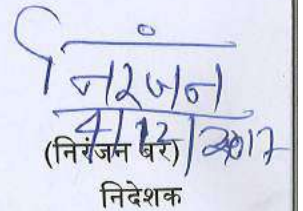 निरंजन
4/12/2017
(निरंजन बर)
निदेशक